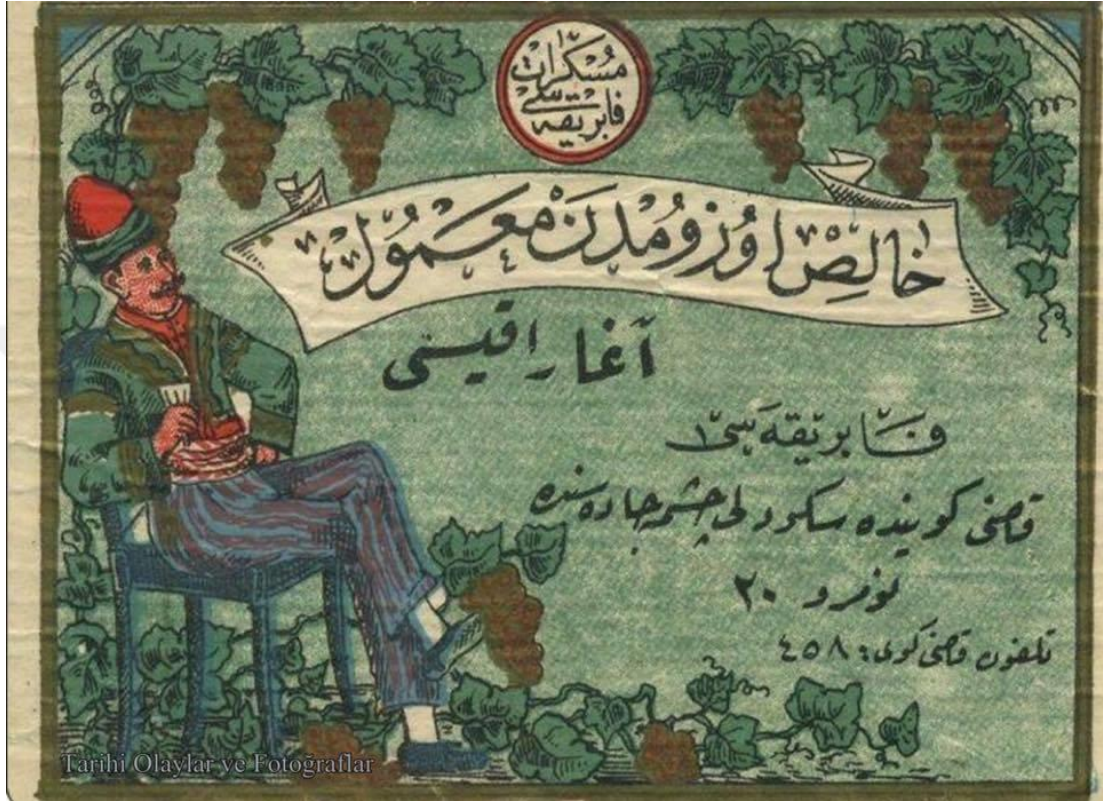 مسكرات
فابريقه سى
خالص اوزومدن معمول
آغا راقيسى
فابريقه سى
قاضى كوينده سكودلى چشمه جاده سنده
نومرو ٢٠
تلفون قاضى كوى: ٤٥٨
Tarihi Olaylar ve Fotoğraflar